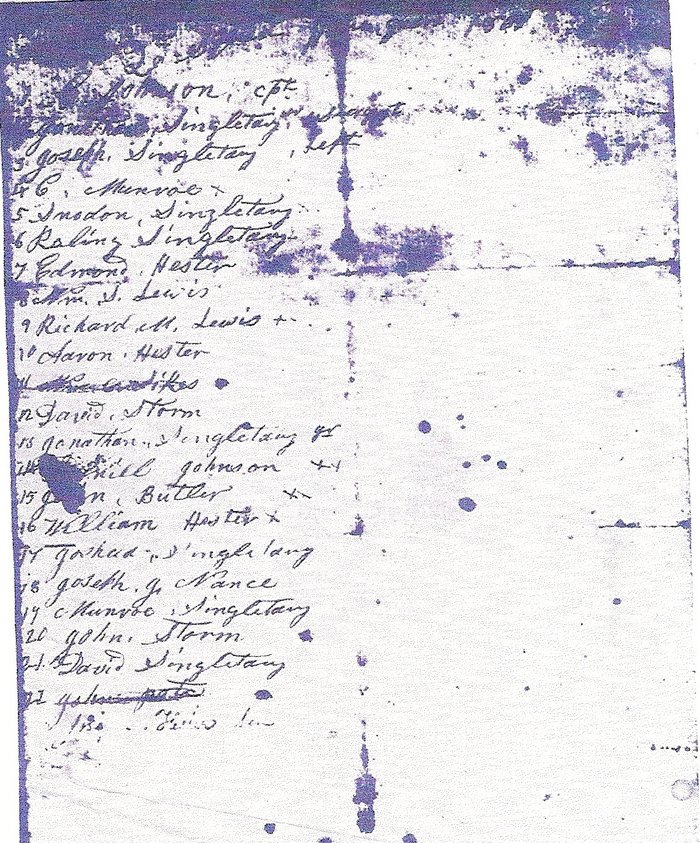 Johnson, cpt
Jonathan, Singletary
3 Joseph, Singletary, Seft
4 C. Munroe x
5 Snodon, Singletary
6 Raling Singletary
7 Edmond, Hester
8 Wm. S. Lewis
9 Richard, M. Lewis +
10 Aaron, Hester
11 Sikes
12 David, Storm
13 Jonathan, Singletary Jr
14 Niell Johnson ++
15 John, Butler xx
16 William Hester x
17 Joshua, Singletary
18 Joseph, J, Nance
19 Munroe, Singletary
20 John, Storm
21 David Singletary
22 John